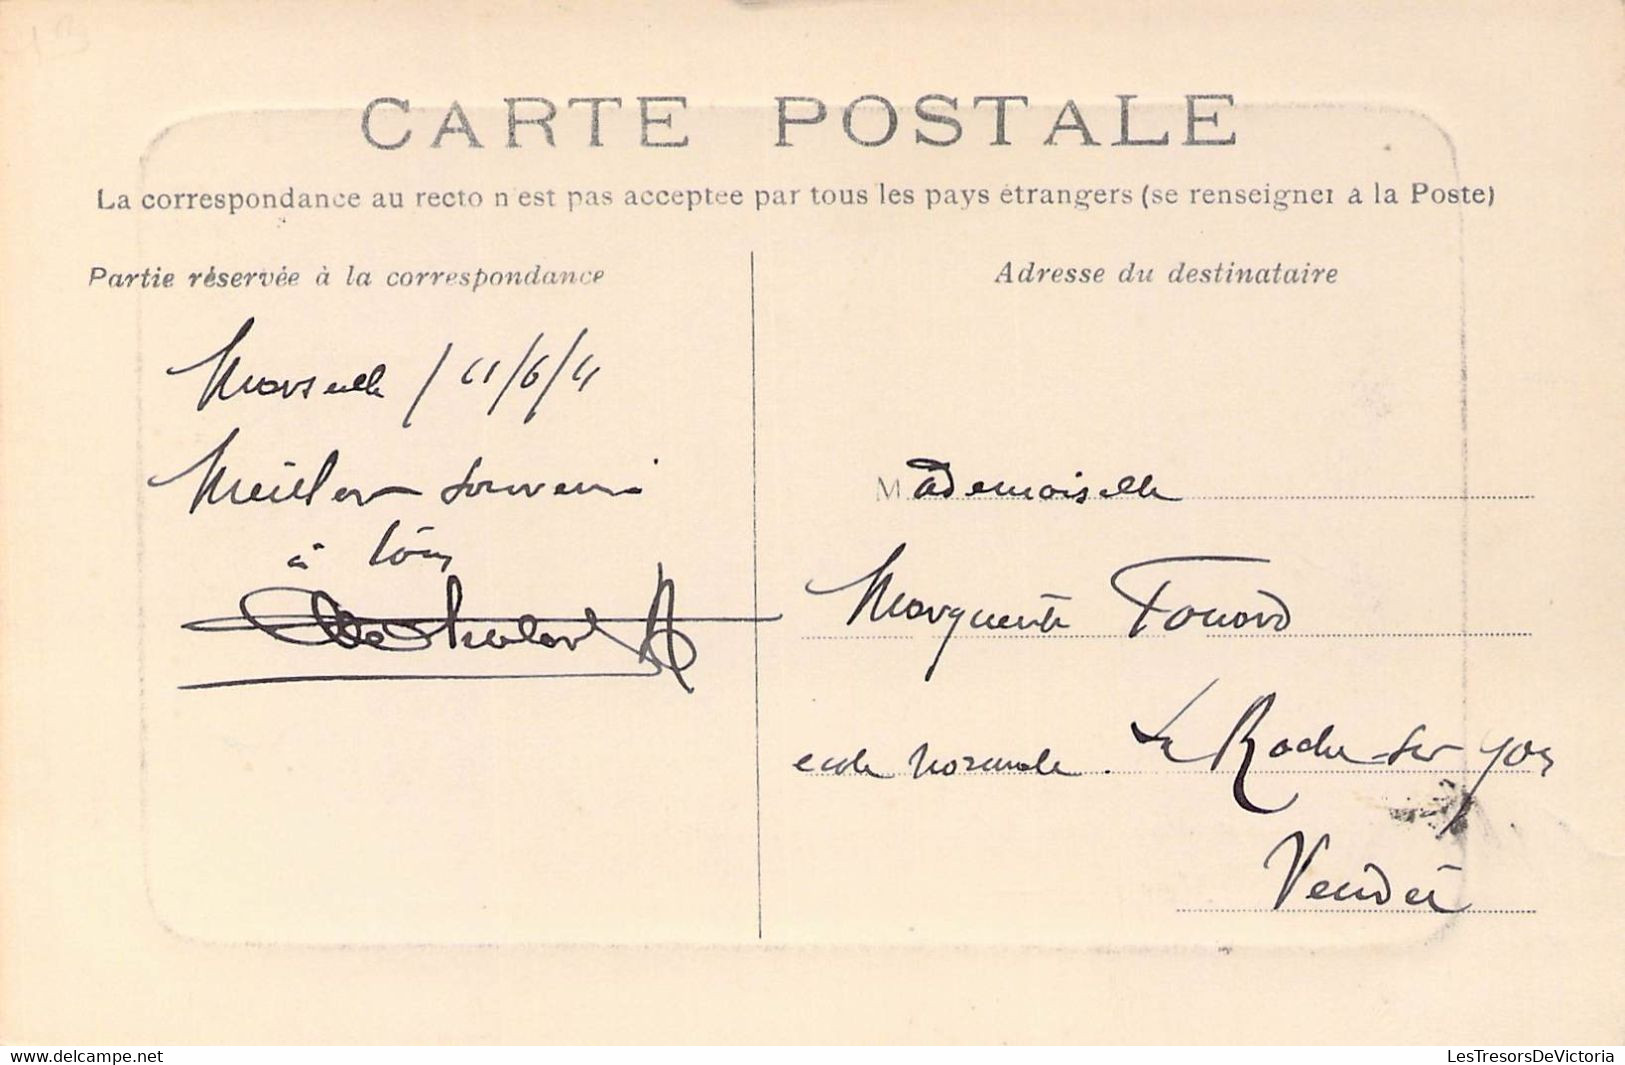 CARTE POSTALE
La correspondance au recto n'est pas acceptée par tous les pays étrangers (se renseigner à la Poste)
Partie réservée à la correspondance
Marseille / 11/6/11
Meilleur souvenir
à tous
Adresse du destinataire
Mademoiselle
Marguerite Fouard
école normale. La Roche-sur-Yon
Vendée
www.delcampe.net
LesTresorsDeVictoria